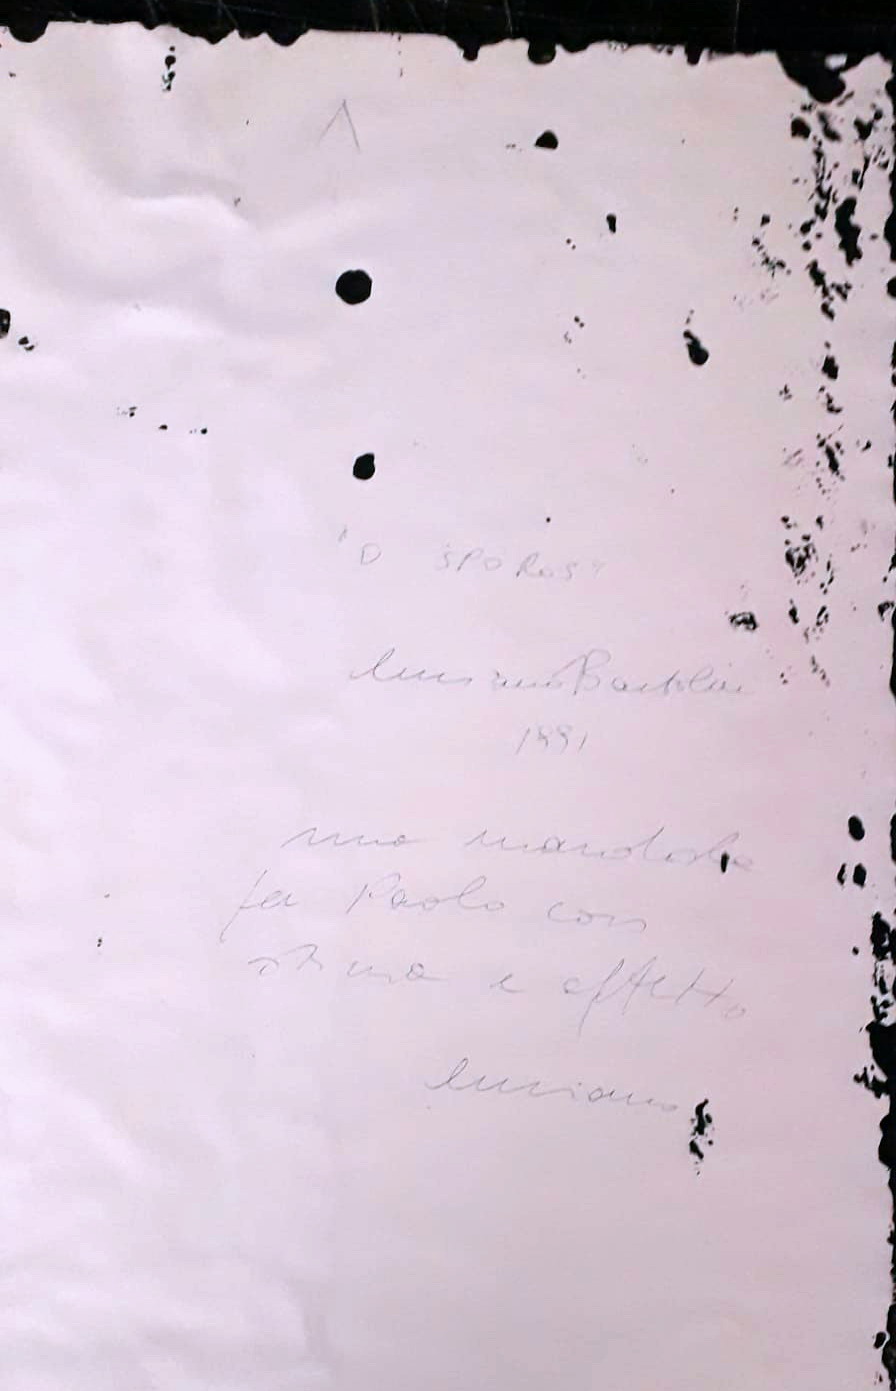 "O SPOROS"
Luciano Bartolini
1991
una mandorla
per Paolo con
stima e affetto
Luciano